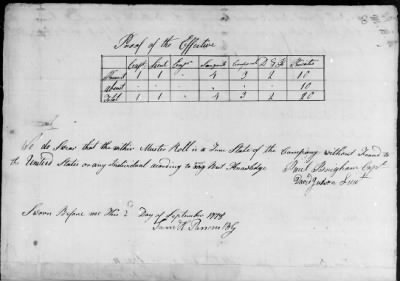 Proof of the Effective
Capt Lieut Ensn Serjeants Corporals D & F Privates
Present 1 1 - 4 3 2 10
Absent - - - - - - 10
Total 1 1 - 4 3 2 20
do Swear that the within Muster Roll is a True State of the Company without Fraud to
the United States or any Individual according to my Best Knowledge
Capt
Lieut
Sworn Before me This 2d Day of September 1778
Saml H Parsons BG